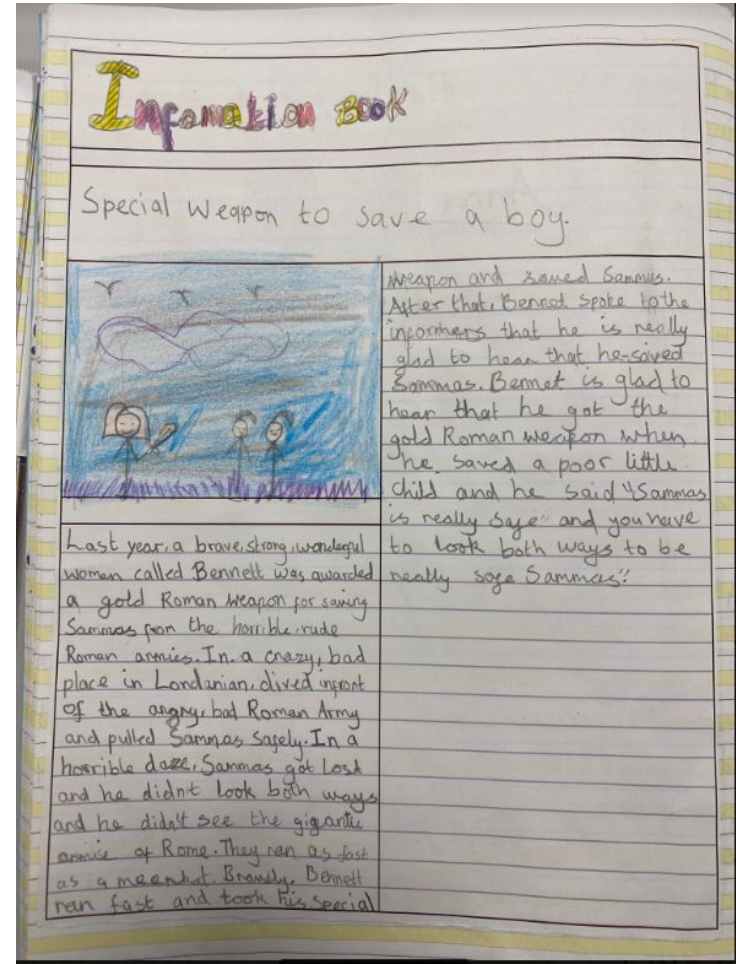 Infomation Book
Special Weapon to save a boy.
Last year, a brave, strong, wonderful
woman called Bennett was awarded
a gold Roman weapon for saving
Sammas from the horrible, rude
Roman armies. In a crazy, bad
place in Londanian, dived infront
of the angry, bad Roman Army
and pulled Sammas safely. In a
horrible daze, Sammas got Lost
and he didn't look both ways
and he didn't see the gigantic
armise of Rome. They ran as fast
as a meerkat. Bravely, Bennett
ran fast and took his special
weapon and saved Sammas.
After that, Bennet spoke to the
informers that he is really
glad to hear that he saved
Sammas. Bennet is glad to
hear that he got the
gold Roman weapon when
he saved a poor little
child and he said "Sammas
is really safe" and you have
to look both ways to be
really safe Sammas".